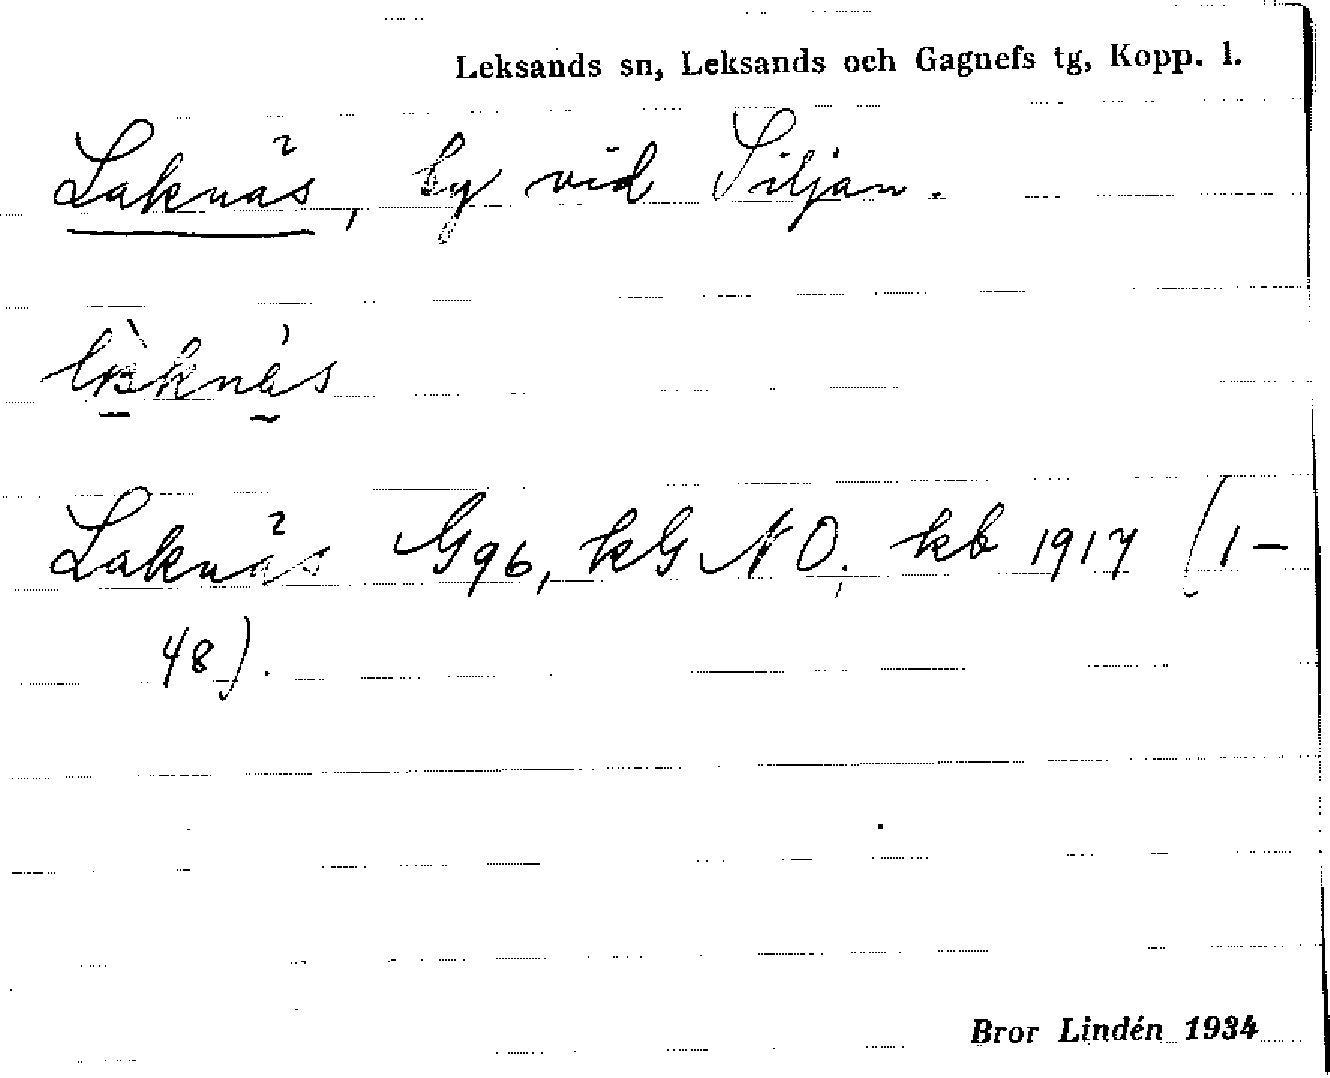 Leksands sn, Leksands och Gagnefs tg, Kopp. l.
Laknäs, by vid Siljan.
Laknäs G96, kG NO; kb 1917 (1–
48).
Bror Lindén 1934